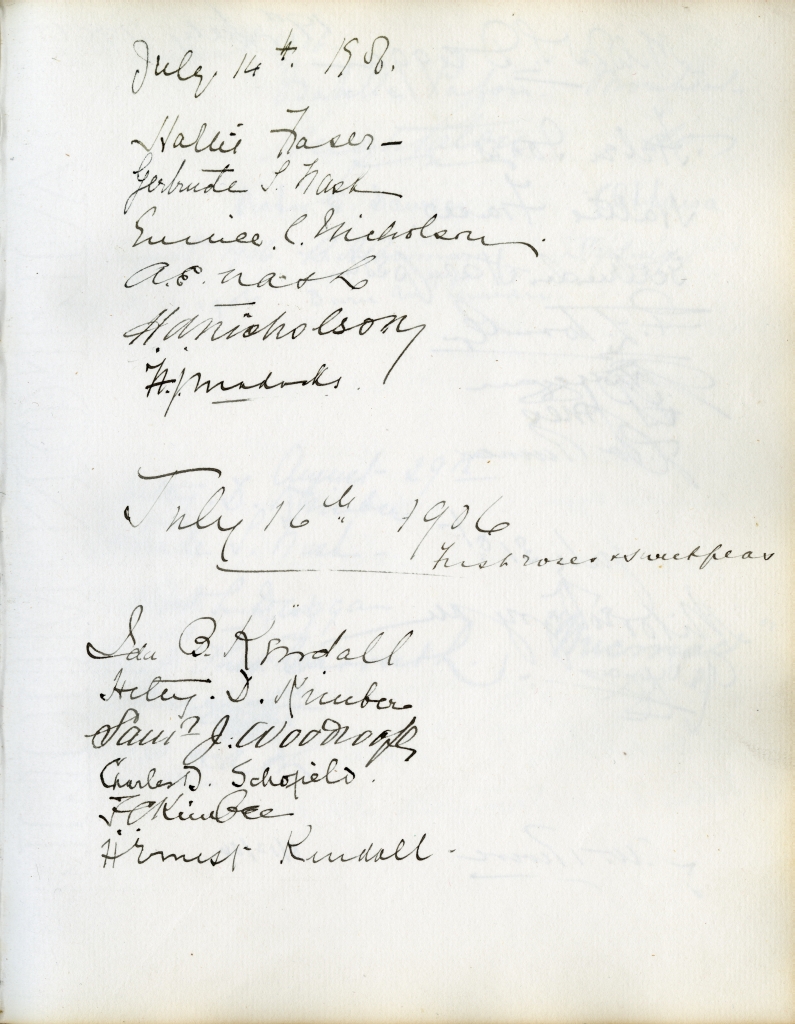 July 14th. 1906.
Hallie Fraser-
Gertrude S. Nash
Eunice. C. Nicholson.
A.E. Nash
H A Nicholson
H.J. Maddocks.
July 16th 1906
First roses & sweet peas
Ida B. Kendall
D. Kimber
Saml J. Woodroofe
Charles D. Schofield.
F C Kimber
H Ernest Kendall-